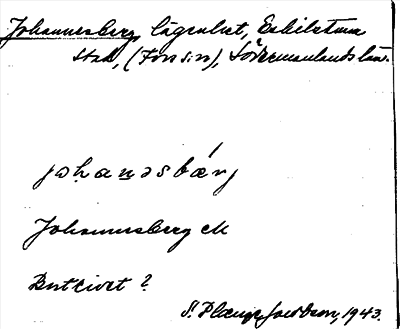 Johannesberg, lägenhet, Eskilstuna
stad, (Fors sn), Södermanlands län.
johanəsbærj
Johannesberg ek
Bortrivet?
S. Plænge Jacobson, 1943.